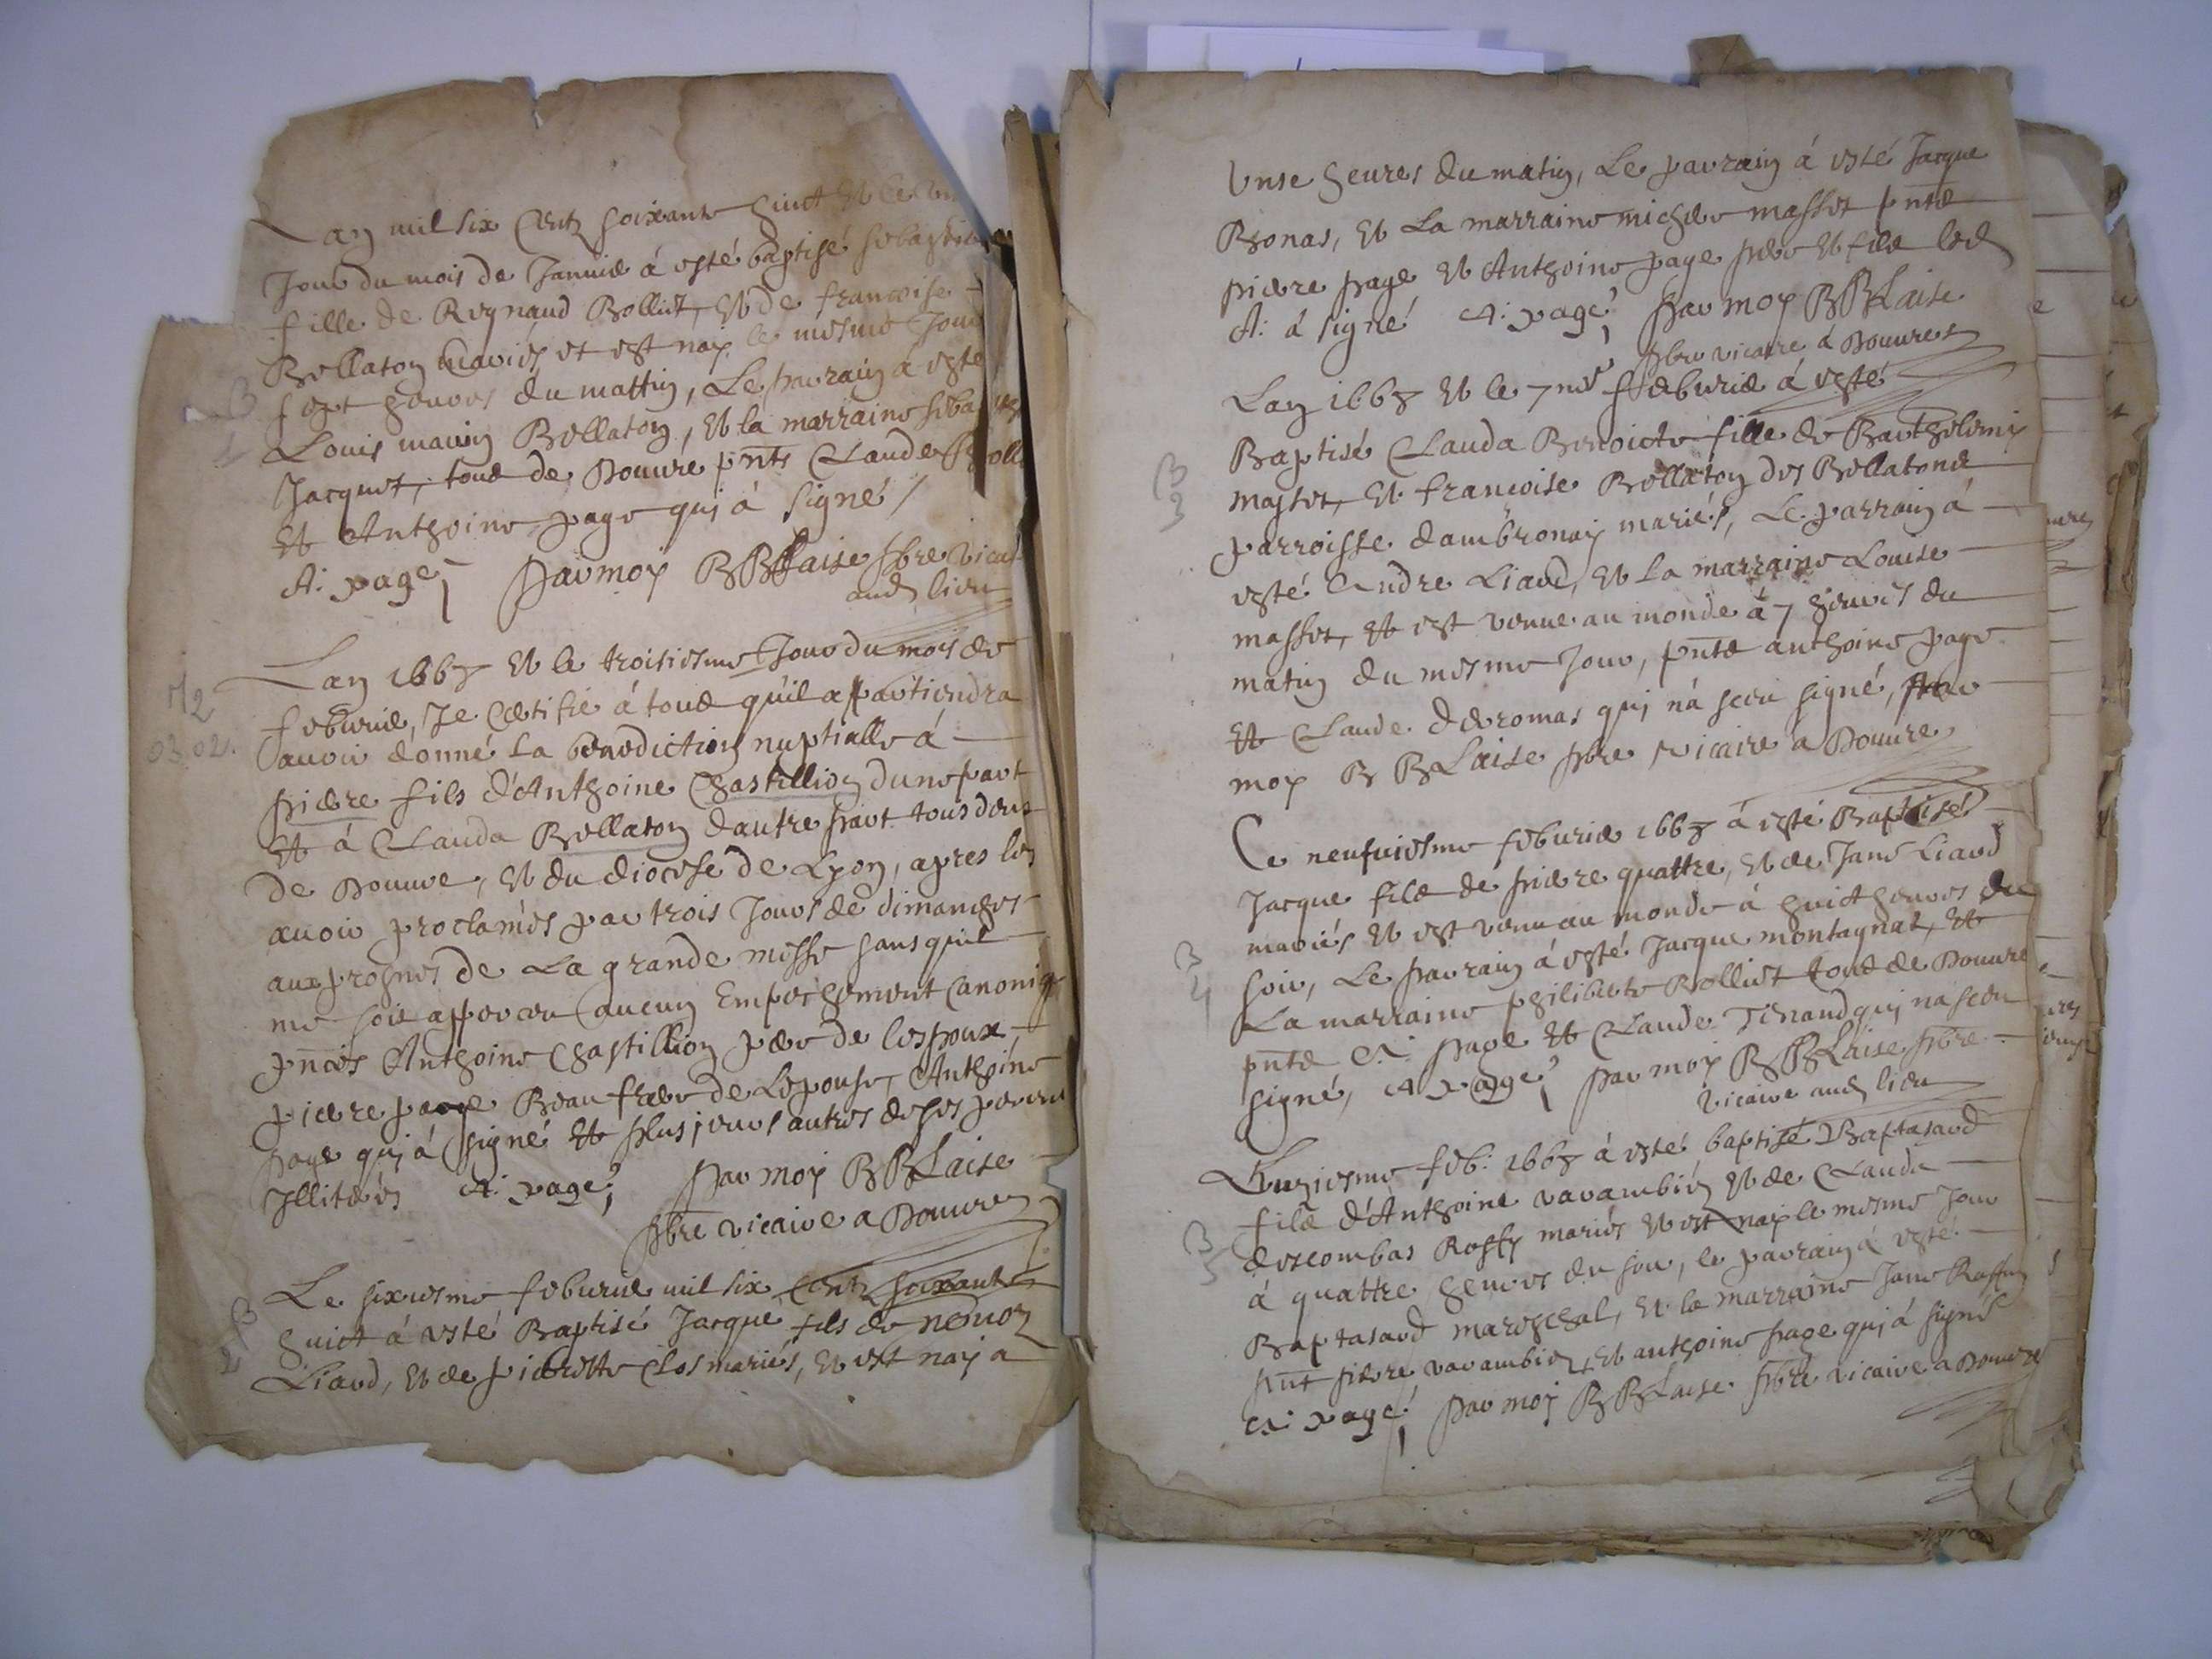 Lan mil six Centz soixante huict Et le
Jour du mois de Januier á esté baptisé sebastie
fille de Reynaud Bolliet, Et de francoise
Bellaton mariés et est nay le mesme Jour
B sept heures du mattin, Le parrain a esté
1 Louis marin Bellaton, Et la marraine seba
Jacquet, tous de Douure pnts Claude Bolli
Et Anthoine page qui á signé /
A: page, par moy B BLaise pbre vica
aud lieu
Lan 1668 Et le troisiesme Jour du mois de
M2 feburier, Je Certifie á tous quil appartiendra
03.02. auoir donné la benediction nuptialle á
pierre fils d'Anthoine Chastillion dune part
Et á Clauda Bellaton dautre part tous deux
de Douure, Et du diocese de Lyon, apres les
auoir proclamés par trois Jours de dimanches
aux prosnes de La grande messe sans quil
me soit apparu aucun Empeschement Canoniq
pnces Anthoine Chastillion pere de lespoux,
pierre page Beau frere de Lepouse, Anthoine
page qui á signé Et plusieurs autres de ses
Illiterés A: page, par moy B BLaise
pbre vicaire a Douure
B Le sixiesme feburier mil six Centz soixante
2 huict á esté Baptisé Jacque fils de nemoz
Liaud, Et de pierrette Clos mariés, Et est nay a
Unse heures du matin, Le parrain á esté Jacque
Bonas, Et La marraine michere masset pnts
pierre page Et Anthoine page pere Et fils led
A: á signé A: page, par moy B BLaise
pbre vicaire á Douures
Lan 1668 Et le 7me feburier á esté
Baptisé Clauda Benoicte fille de Barthelemy
B masset, Et francoise Bellaton des Bellatons
3 parroisse dambronay mariés, Le parrain á
esté Andre Liaud, Et la marraine Louise
masset, Et est venue au monde á 7 heures du
matin du mesme Jour, pnts anthoine page
Et Claude deromas qui ná sceu signé, par
moy B BLaise pbre vicaire á Douure
Ce neufuiesme feburier 1668 á esté Baptisé
Jacque fils de pierre quattre, Et de Jane Liaud
mariés Et est venu au monde á huict heures du
B soir, Le parrain á esté Jacque montagnat, Et
4 La marraine philiberte Bolliet tous de Douure
pnts A: page Et Claude Tenand qui ná sceu
signé, A page, par moy B BLaise pbre
vicaire aud lieu
L'unziesme feb: 1668 á esté baptisé Baptasard
fils d'Anthoine varambier Et de Clauda
B descombas Rossy mariés Et est nay le mesme Jour
5 á quattre heures du soir, le parrain á esté
Baptasard mareschal, Et la marraine Jane Raffin
pnt pierre varambier, Et anthoine page qui á signé
A: page, par moy B BLaise pbre vicaire a Douure